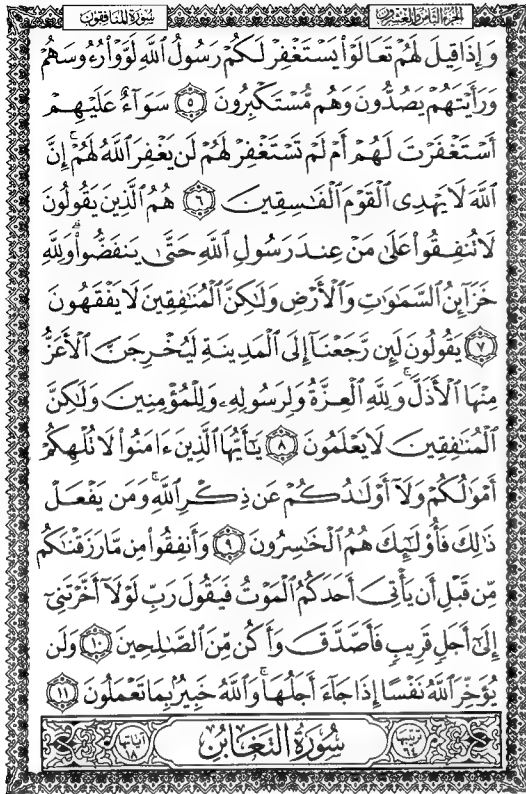 سُورَةُ المُنَافِقُونَ
الجُزءُ الثَّامِنُ وَالعِشْرُونَ
وَإِذَا قِيلَ لَهُمْ تَعَالَوْا۟ يَسْتَغْفِرْ لَكُمْ رَسُولُ ٱللَّهِ لَوَّوْا۟ رُءُوسَهُمْ
وَرَأَيْتَهُمْ يَصُدُّونَ وَهُم مُّسْتَكْبِرُونَ ٥ سَوَآءٌ عَلَيْهِمْ
أَسْتَغْفَرْتَ لَهُمْ أَمْ لَمْ تَسْتَغْفِرْ لَهُمْ لَن يَغْفِرَ ٱللَّهُ لَهُمْ ۚ إِنَّ
ٱللَّهَ لَا يَهْدِى ٱلْقَوْمَ ٱلْفَٰسِقِينَ ٦ هُمُ ٱلَّذِينَ يَقُولُونَ
لَا تُنفِقُوا۟ عَلَىٰ مَنْ عِندَ رَسُولِ ٱللَّهِ حَتَّىٰ يَنفَضُّوا۟ ۗ وَلِلَّهِ
خَزَآئِنُ ٱلسَّمَٰوَٰتِ وَٱلْأَرْضِ وَلَٰكِنَّ ٱلْمُنَٰفِقِينَ لَا يَفْقَهُونَ
٧ يَقُولُونَ لَئِن رَّجَعْنَآ إِلَى ٱلْمَدِينَةِ لَيُخْرِجَنَّ ٱلْأَعَزُّ
مِنْهَا ٱلْأَذَلَّ ۚ وَلِلَّهِ ٱلْعِزَّةُ وَلِرَسُولِهِۦ وَلِلْمُؤْمِنِينَ وَلَٰكِنَّ
ٱلْمُنَٰفِقِينَ لَا يَعْلَمُونَ ٨ يَٰٓأَيُّهَا ٱلَّذِينَ ءَامَنُوا۟ لَا تُلْهِكُمْ
أَمْوَٰلُكُمْ وَلَآ أَوْلَٰدُكُمْ عَن ذِكْرِ ٱللَّهِ ۚ وَمَن يَفْعَلْ
ذَٰلِكَ فَأُو۟لَٰٓئِكَ هُمُ ٱلْخَٰسِرُونَ ٩ وَأَنفِقُوا۟ مِن مَّا رَزَقْنَٰكُم
مِّن قَبْلِ أَن يَأْتِىَ أَحَدَكُمُ ٱلْمَوْتُ فَيَقُولَ رَبِّ لَوْلَآ أَخَّرْتَنِىٓ
إِلَىٰٓ أَجَلٍ قَرِيبٍ فَأَصَّدَّقَ وَأَكُن مِّنَ ٱلصَّٰلِحِينَ ١٠ وَلَن
يُؤَخِّرَ ٱللَّهُ نَفْسًا إِذَا جَآءَ أَجَلُهَا ۚ وَٱللَّهُ خَبِيرٌۢ بِمَا تَعْمَلُونَ ١١
ترتيبها ٦٤ سُورَةُ التَّغَابُنِ آياتها ١٨